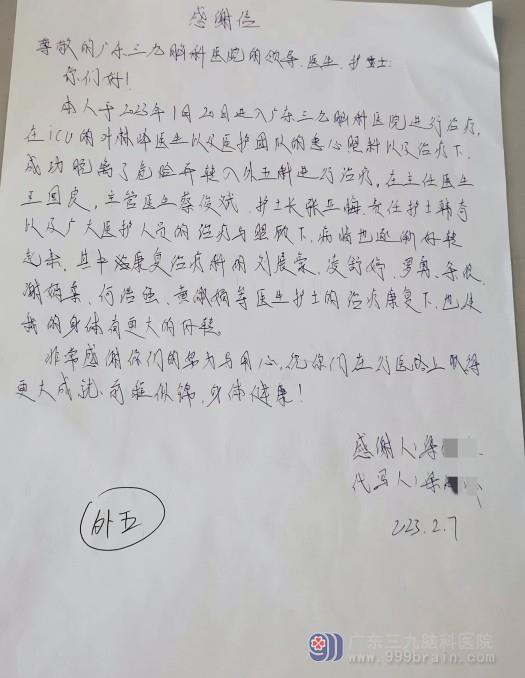 感谢信
尊敬的广东三九脑科医院的领导、医生、护士:
你们好!
本人于2023年1月20日进入广东三九脑科医院进行治疗,
在icu的叶林泽医生以及医护团队的悉心照料以及治疗下,
成功脱离了危险并转入外五科进行治疗,在主任医生
王国良,主管医生蔡俊斌、护士长张亚梅、责任护士韩奇
以及广大医护人员的治疗与照顾下,病情也逐渐好转
起来,其中经康复治疗科的刘展豪、凌舒婷、罗勇、
谢炳柔、何浩强、黄淑娟等医生护士的治疗康复下,也使
我的身体有更大的好转。
非常感谢你们的努力与用心,祝你们在行医路上取得
更大成就、前程似锦,身体健康!
感谢人:梁
代写人:梁
2023.2.7
外五
广东三九脑科医院
www.999brain.com